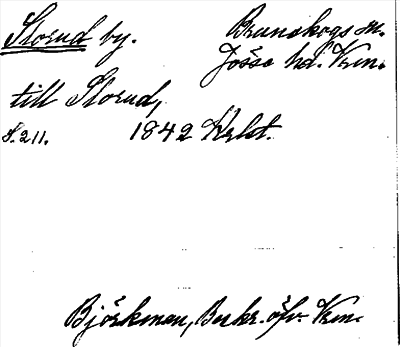 Storud by. Brunskogs sn.
Jösse hd. Vrm.
till Storud,
S. 211. 1842 Krbt.
Björkman, Beskr. öfv. Vrm.